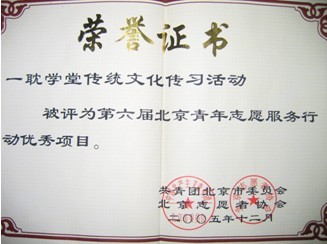 荣誉证书
一耽学堂传统文化传习活动
被评为第六届北京青年志愿服务行
动优秀项目。
共青团北京市委员会
北京志愿者协会
二〇〇五年十二月